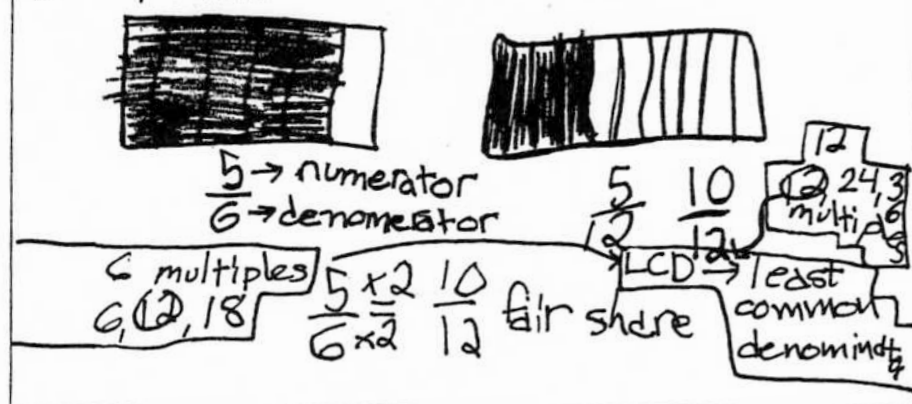 5 → numerator
6 → denomerator
5
12
10
12
12
12, 24, 36
multiples
6 multiples
6, 12, 18
5 ×2 = 10
6 ×2 12
fair share
LCD → least
common
denominator